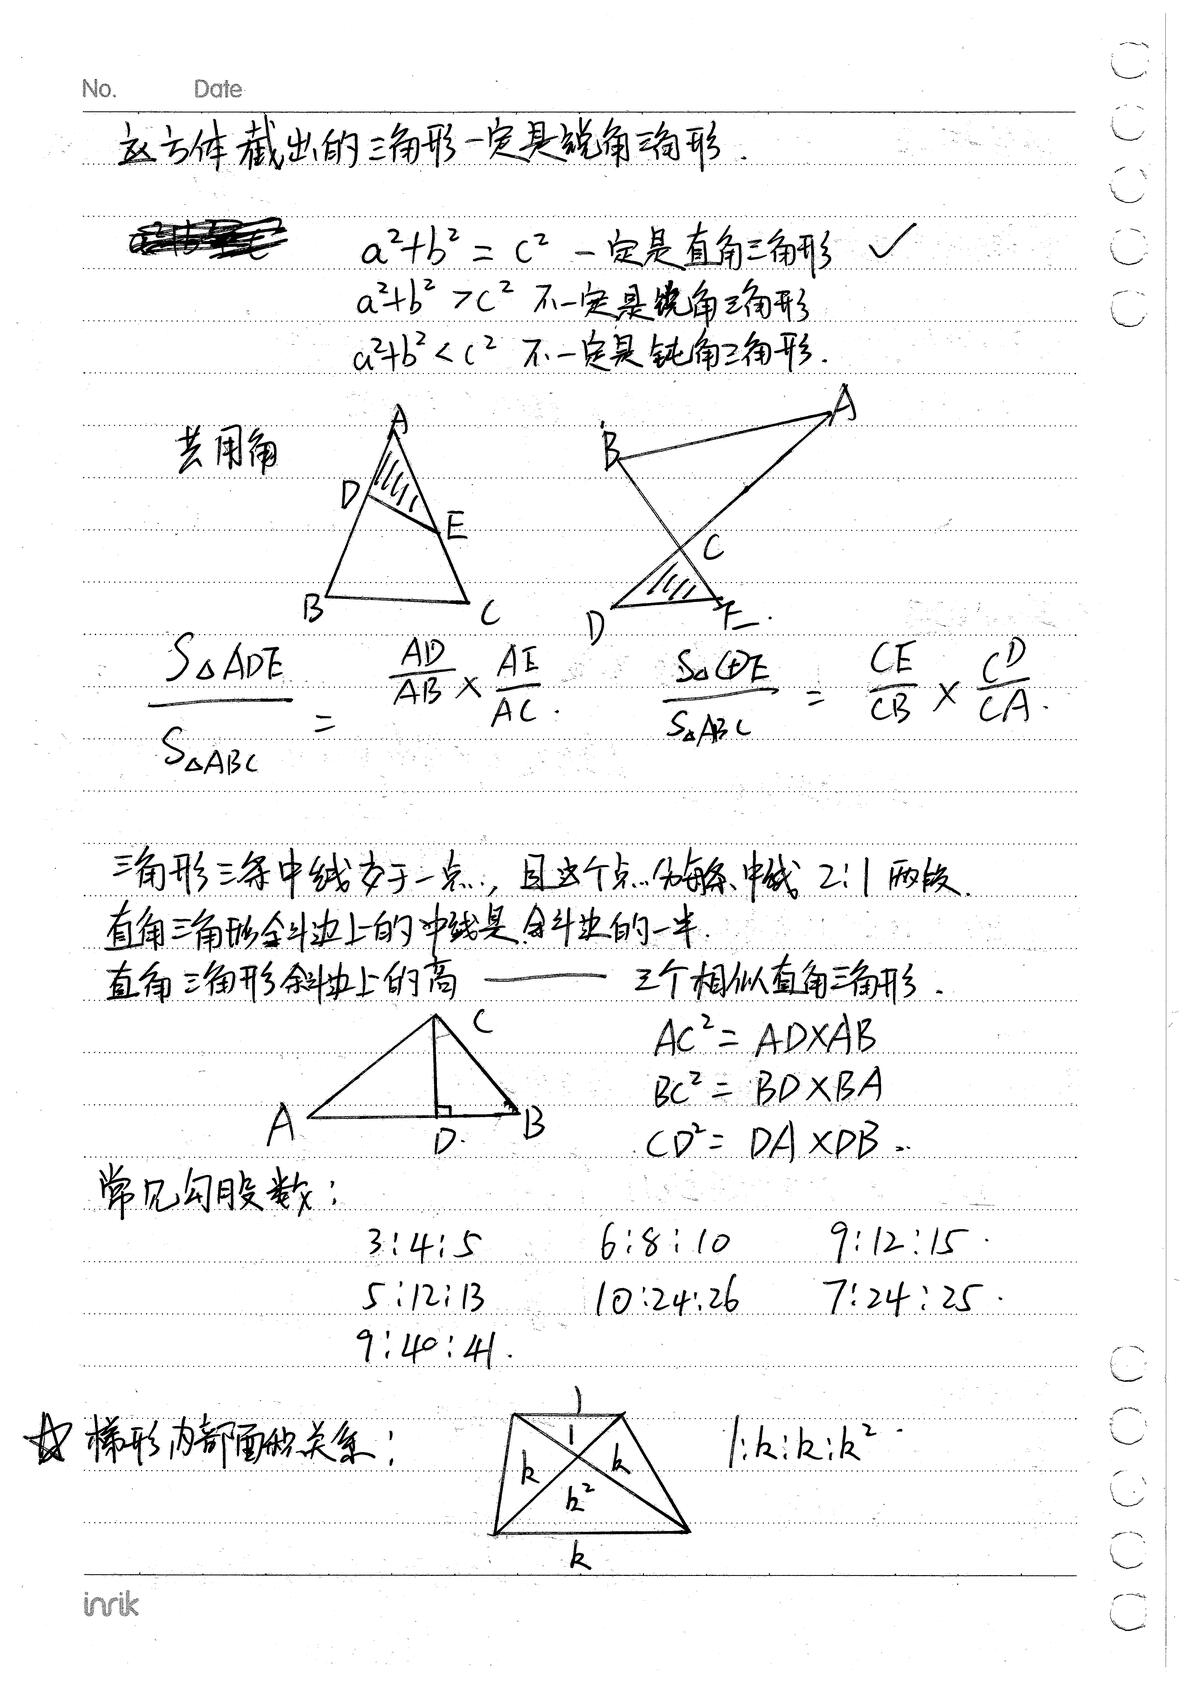 No. Date
立方体截出的三角形一定是锐角三角形.
a²+b²=c² 一定是直角三角形 ✓
a²+b²>c² 不一定是锐角三角形
a²+b²<c² 不一定是钝角三角形.
共用角
A D E B C
A B C D E.
S△ADE/S△ABC = AD/AB × AE/AC.
S△CDE/S△ABC = CE/CB × CD/CA.
三角形三条中线交于一点, 且这个点分每条中线2:1两段.
直角三角形斜边上的中线是斜边的一半.
直角三角形斜边上的高 —— 三个相似直角三角形.
C A D B
AC²=AD×AB
BC²=BD×BA
CD²=DA×DB.
常见勾股数:
3:4:5 6:8:10 9:12:15.
5:12:13 10:24:26 7:24:25.
9:40:41.
☆梯形内部面积关系: 1:k:k:k².
1
1
k k
k²
k
inrik